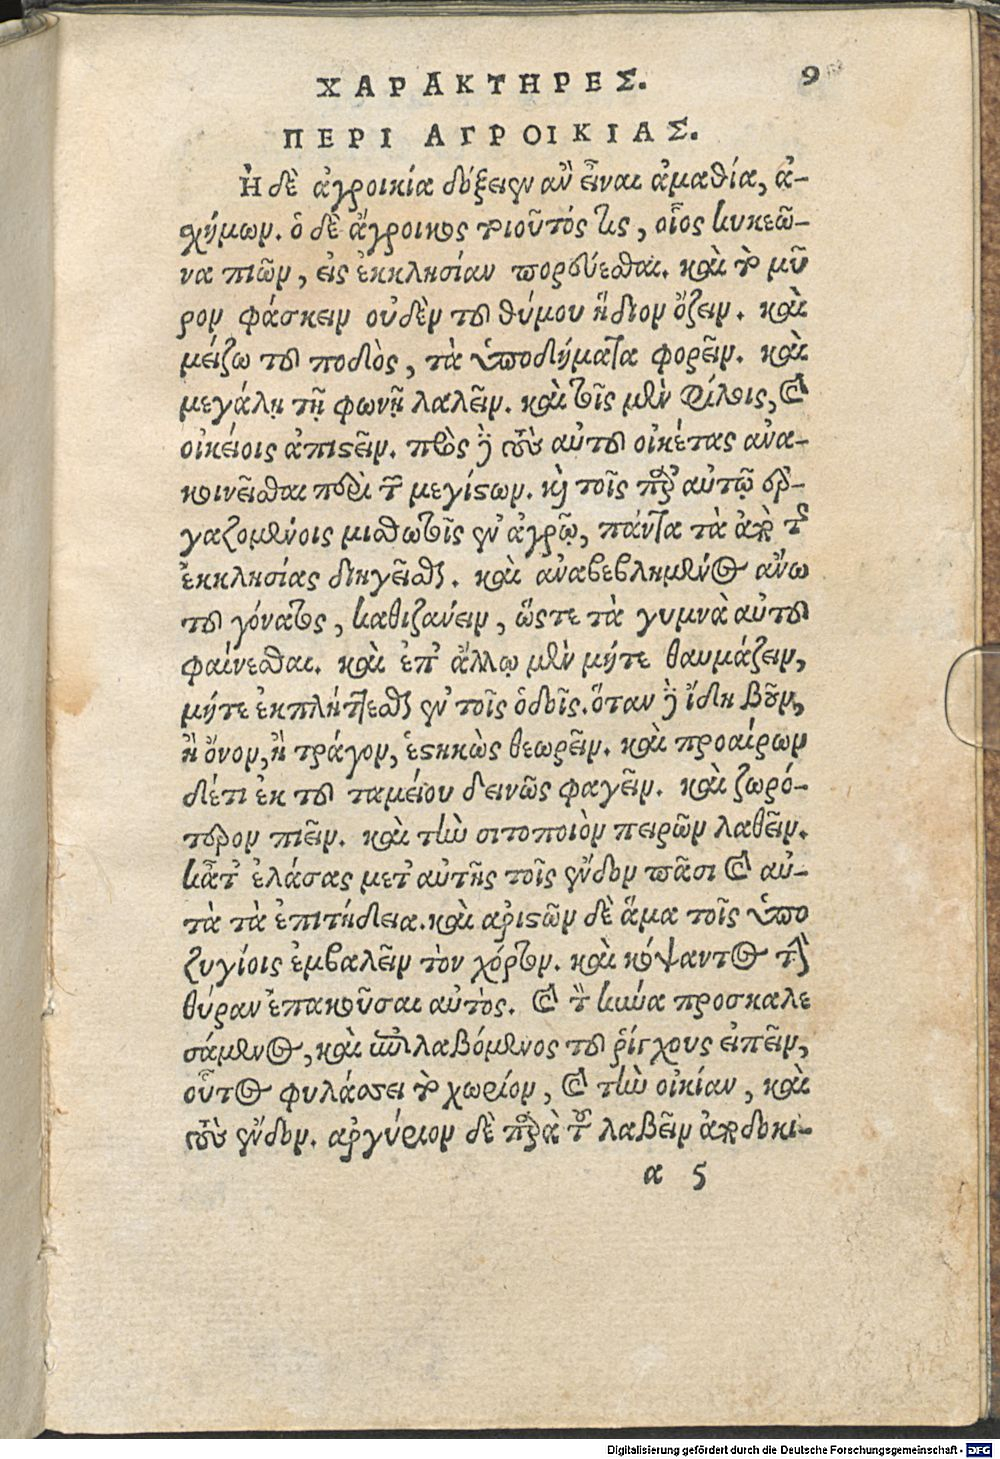 ΧΑΡΑΚΤΗΡΕΣ. 9
ΠΕΡΙ ΑΓΡΟΙΚΙΑΣ.
Ἡ δὲ ἀγροικία δόξειεν ἂν εἶναι ἀμαθία, ἀ-
χήμων. ὁ δὲ ἄγροικος τοιοῦτός τις, οἷος κυκεῶ-
να πιῶν, εἰς ἐκκλησίαν πορεύεσθαι. καὶ τὸ μῦ
ρον φάσκειν οὐδὲν τοῦ θύμου ἥδιον ὄζειν. καὶ
μείζω τοῦ ποδὸς, τὰ ὑποδήματα φορεῖν. καὶ
μεγάλῃ τῇ φωνῇ λαλεῖν. καὶ τοῖς μὲν φίλοις, καὶ
οἰκείοις ἀπιστεῖν. πρὸς δὲ τοὺς αὐτοῦ οἰκέτας ἀνα-
κοινεῖσθαι περὶ τῶν μεγίστων. καὶ τοῖς παρ' αὐτῷ ἐρ-
γαζομένοις μισθωτοῖς ἐν ἀγρῷ, πάντα τὰ ἀπὸ τῆς
ἐκκλησίας διηγεῖσθαι. καὶ ἀναβεβλημένος ἄνω
τοῦ γόνατος, καθιζάνειν, ὥστε τὰ γυμνὰ αὐτοῦ
φαίνεσθαι. καὶ ἐπ' ἄλλῳ μὲν μήτε θαυμάζειν,
μήτε ἐκπλήττεσθαι ἐν τοῖς ὁδοῖς. ὅταν δὲ ἴδῃ βοῦν,
ἢ ὄνον, ἢ τράγον, ἑστηκὼς θεωρεῖν. καὶ προαίρων
δέτι ἐκ τοῦ ταμείου δεινῶς φαγεῖν. καὶ ζωρό-
τερον πιεῖν. καὶ τὴν σιτοποιὸν πειρῶν λαθεῖν.
κᾆτ' ἐλάσας μετ' αὐτῆς τοῖς ἔνδον πᾶσι καὶ αὐ-
τὰ τὰ ἐπιτήδεια. καὶ ἀριστῶν δὲ ἅμα τοῖς ὑπο
ζυγίοις ἐμβαλεῖν τὸν χόρτον. καὶ κόψαντος τὴν
θύραν ἐπακοῦσαι αὐτὸς. καὶ τὸν κύνα προσκαλε
σάμενος, καὶ ἐπιλαβόμενος τοῦ ῥίγχους εἰπεῖν,
οὗτος φυλάσσει τὸ χωρίον, καὶ τὴν οἰκίαν, καὶ
τοὺς ἔνδον. ἀργύριον δὲ παρὰ τοῦ λαβεῖν ἀποδοκι-
α 5
Digitalisierung gefördert durch die Deutsche Forschungsgemeinschaft - DFG